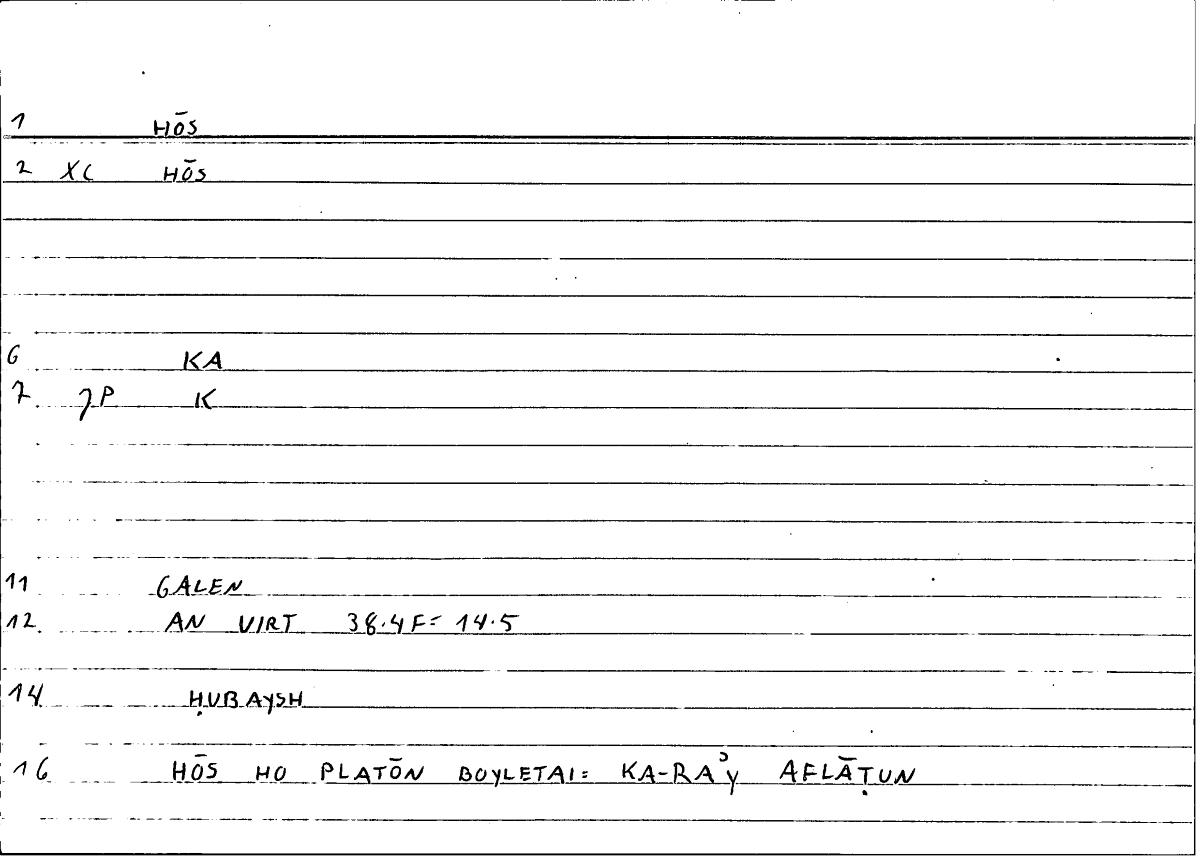 1 HŌS
2 XC HŌS
6 KA
7 JP K
11 GALEN
12 AN VIRT 38.4F= 14.5
14 ḤUBAYSH
16 HŌS HO PLATŌN BOYLETAI= KA-RAʾY AFLĀṬUN